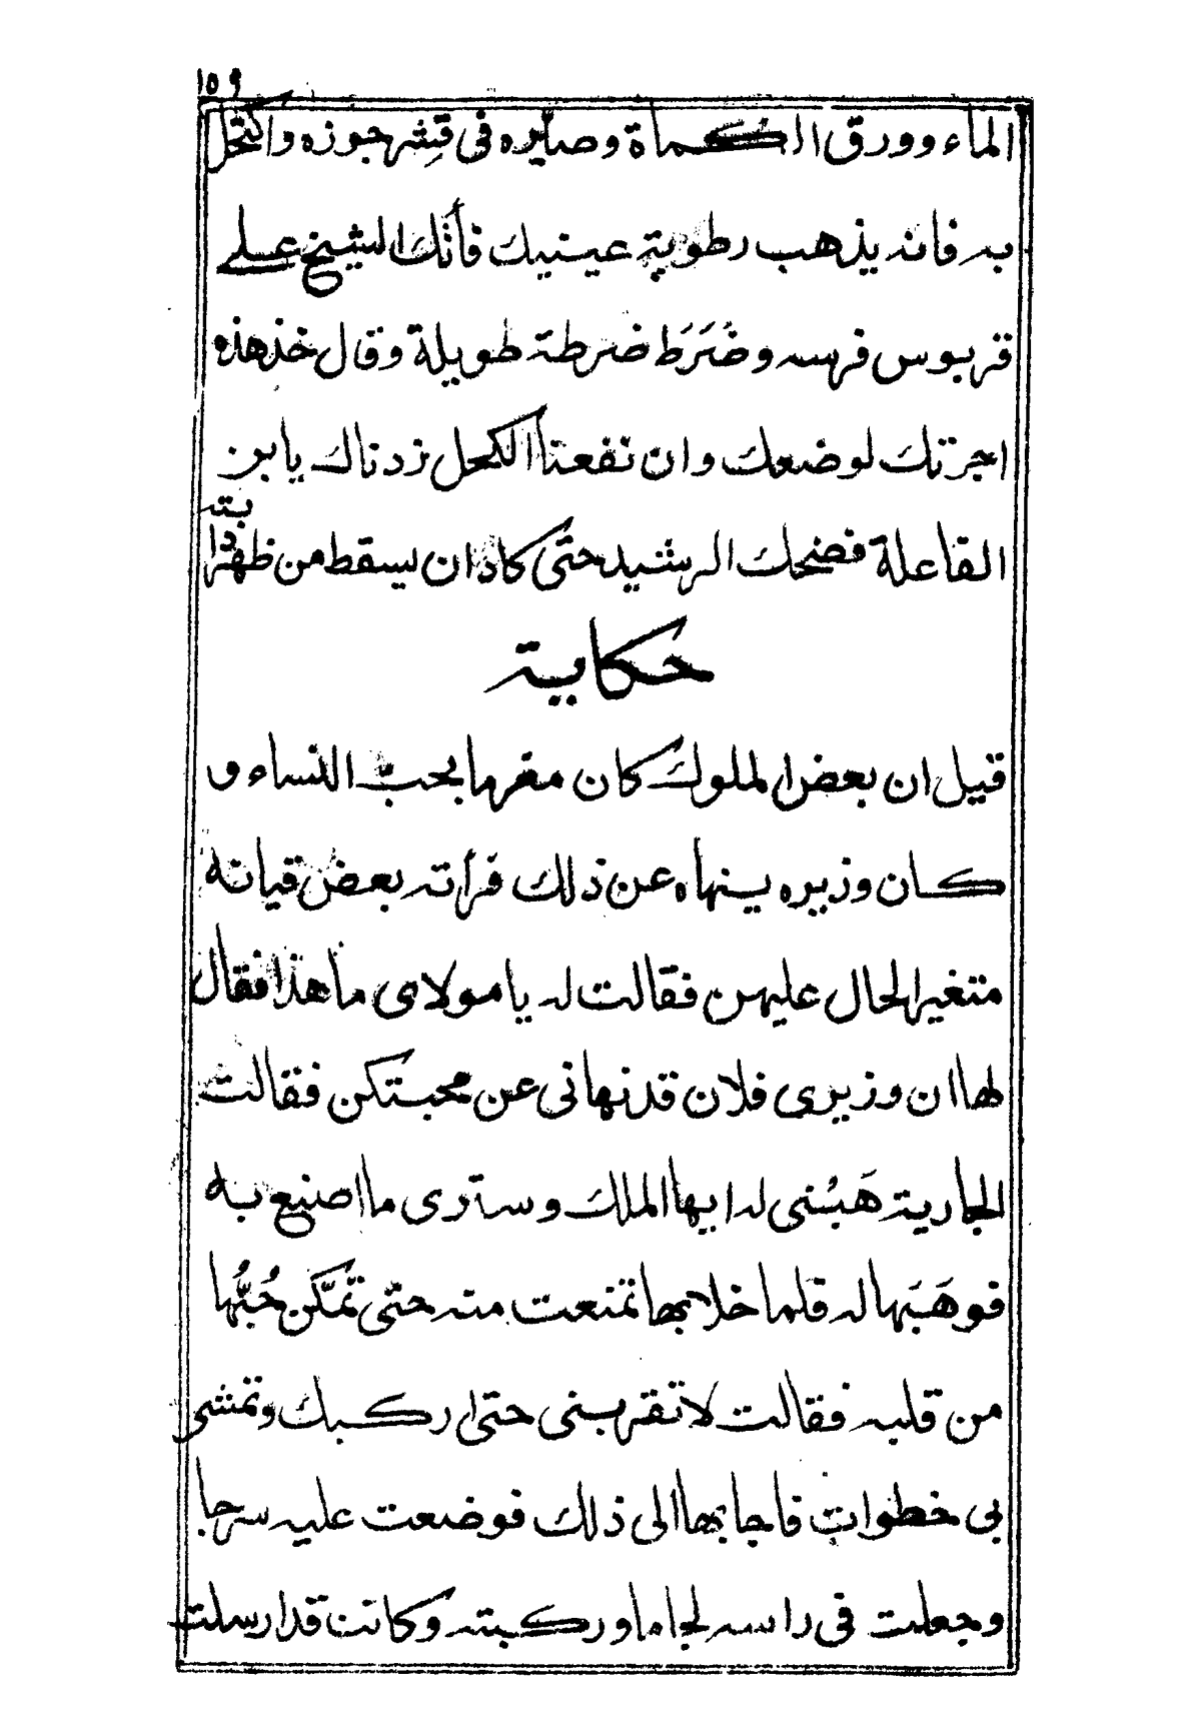 ١٥٩
الماء وورق الكماة وصيّره فى قِشر جوزه واكتحل
به فانه يذهب رطوبة عينيك فأتّك الشيخ على
قربوس فرسه وضَرَط ضرطة طويلة وقال خذ هذه
اجرتك لوضعك وان نفعنا الكحل زدناك يا بن
القاعلة فضحك الرشيد حتى كاد ان يسقط من ظهر دابته
حكاية
قيل ان بعض الملوك كان مغرما بحبّ النساء و
كان وزيره ينهاه عن ذلك فرأته بعض قيانه
متغير الحال عليهن فقالت له يا مولاى ما هذا فقال
لها ان وزيرى فلان قد نهانى عن محبتكن فقالت
الجارية هَبْنى له ايها الملك وسترى ما اصنع به
فوهَبَها له فلما خلا بها تمنعت منه حتّى تمّكن حُبُّها
من قلبه فقالت لا تقربنى حتى اركبك وتمشى
بى خطوات فاجابها الى ذلك فوضعت عليه سرجا
وجعلت فى راسه لجاما وركبته وكانت قد ارسلت